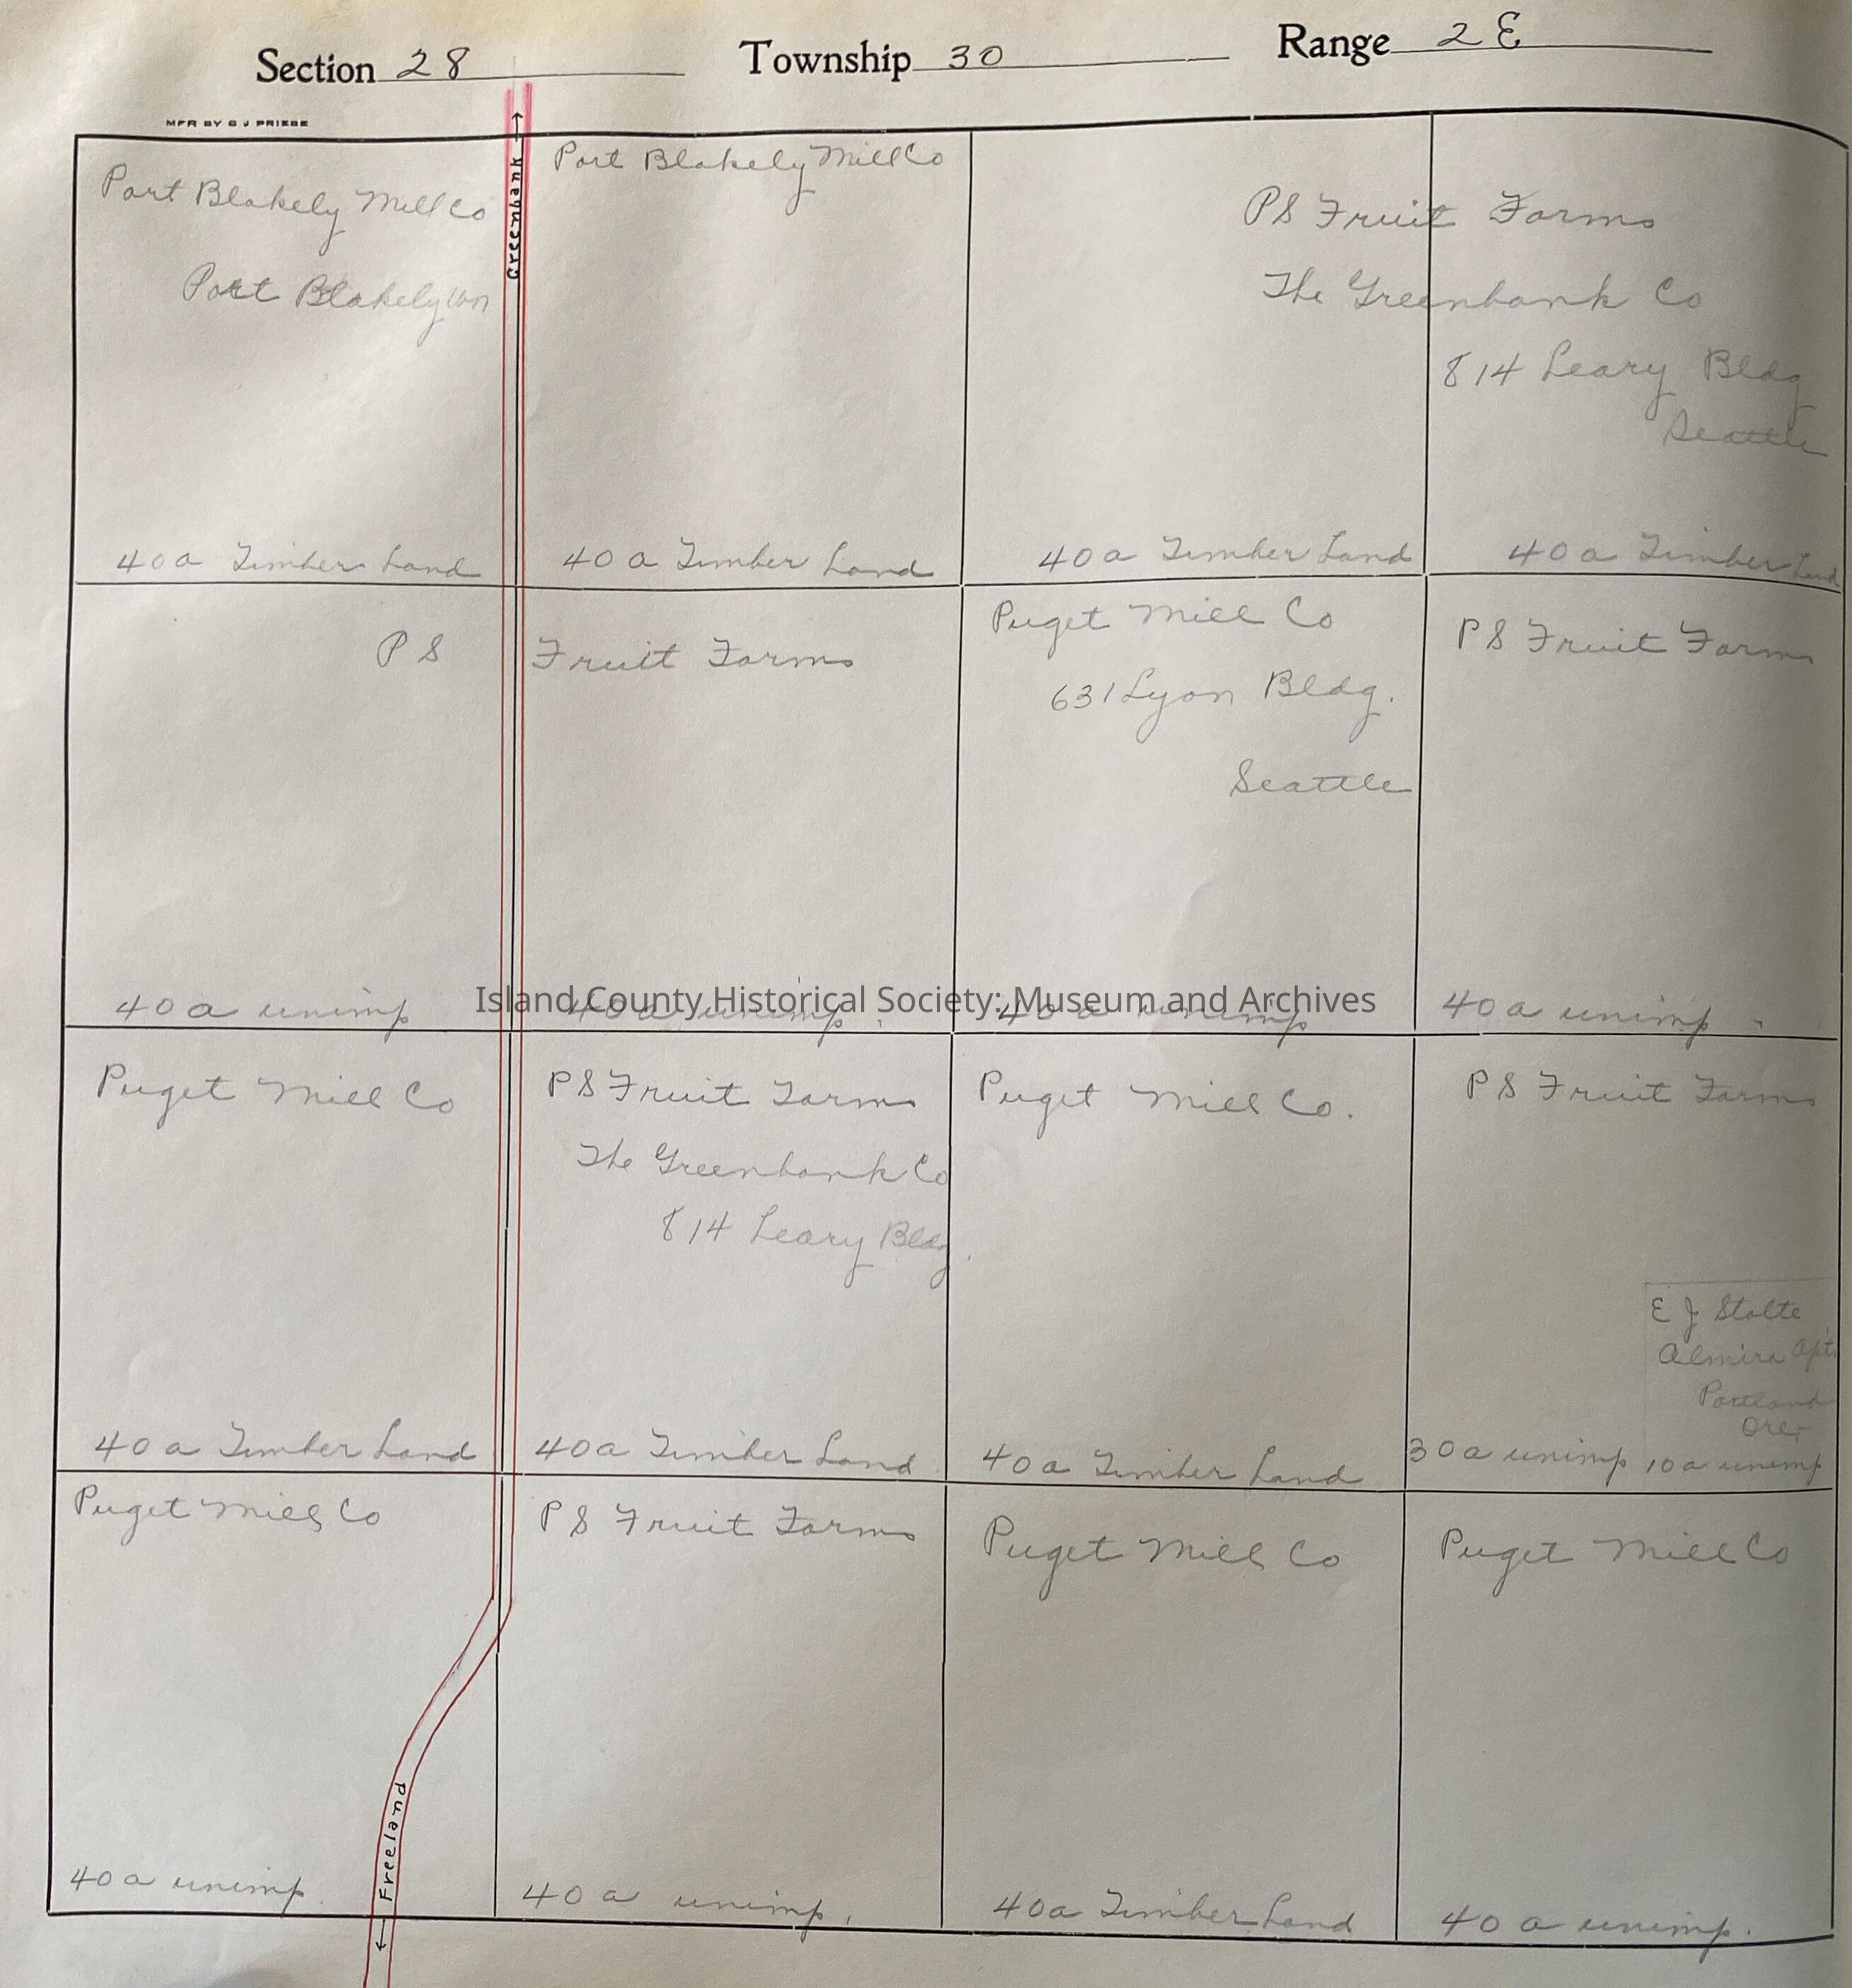 Section 28 Township 30 Range 2 E
MFR BY G J PRIEBE
Greenbank
Port Blakely Mill Co
Port Blakely Wn
40 a Timber Land
Port Blakely Mill Co
40 a Timber Land
PS Fruit Farms
The Greenbank Co
814 Leary Bldg
Seattle
40 a Timber Land
40 a Timber Land
PS Fruit Farms
40 a unimp
40 a unimp.
Puget Mill Co
631 Lyon Bldg.
Seattle
40 a unimp
PS Fruit Farms
40 a unimp
Island County Historical Society: Museum and Archives
Puget Mill Co
40 a Timber Land
PS Fruit Farms
The Greenbank Co
814 Leary Bldg.
40 a Timber Land
Puget Mill Co.
40 a Timber Land
PS Fruit Farms
30 a unimp
E J Stolte
Almira Apt.
Portland
Ore.
10 a unimp
Puget Mill Co
40 a unimp.
Freeland
PS Fruit Farms
40 a unimp.
Puget Mill Co
40 a Timber Land
Puget Mill Co
40 a unimp.